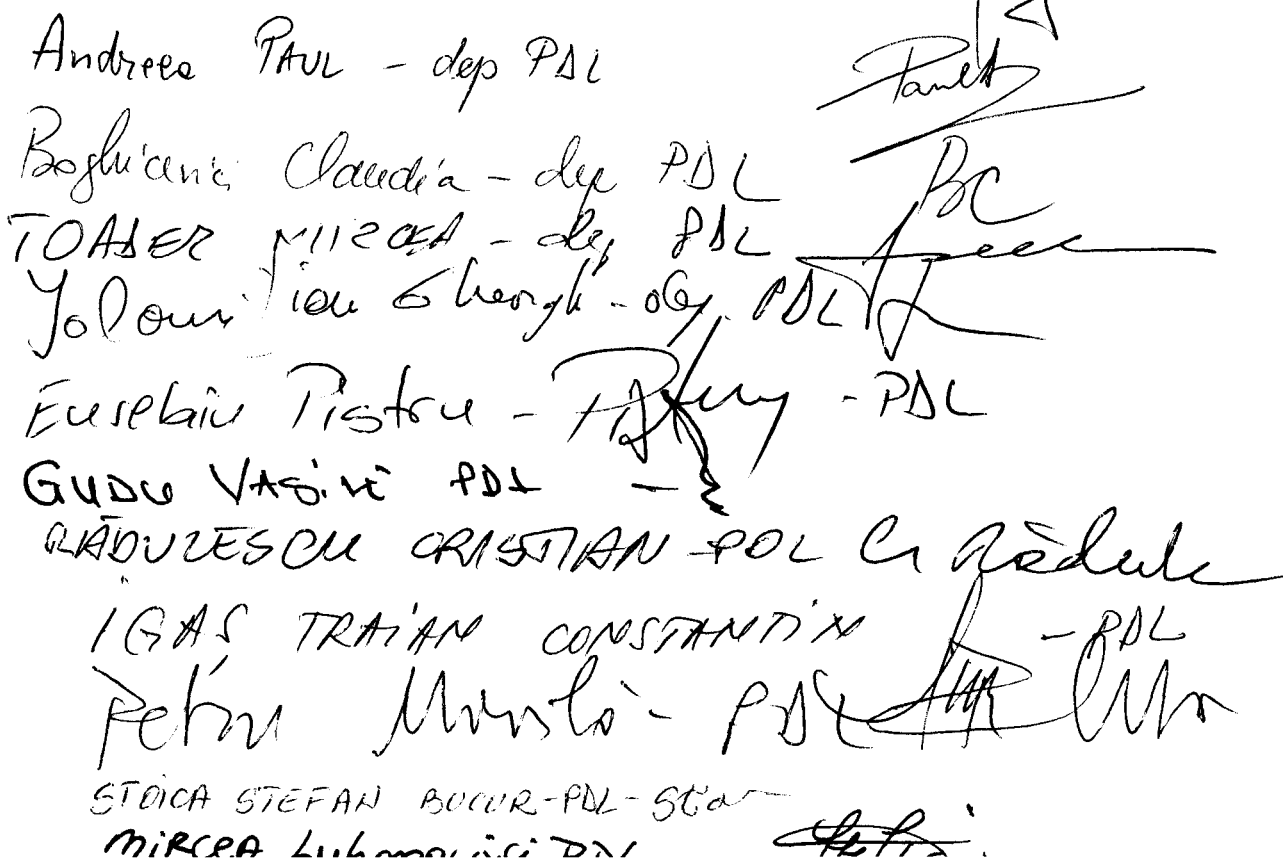 Andreea PAUL - dep PDL PaulA
Boghicevici Claudia - dep PDL BC
TOADER MIRCEA - dep PDL
Ialomițianu Gheorghe - dep. PDL
Eusebiu Pistru - - PDL
GUDU VASILE PDL -
RĂDULESCU CRISTIAN - PDL Cr Rădule
IGAȘ TRAIAN CONSTANTIN - PDL
Petru Movilă - PDL
STOICA STEFAN BUCUR - PDL - Sto
MIRCEA